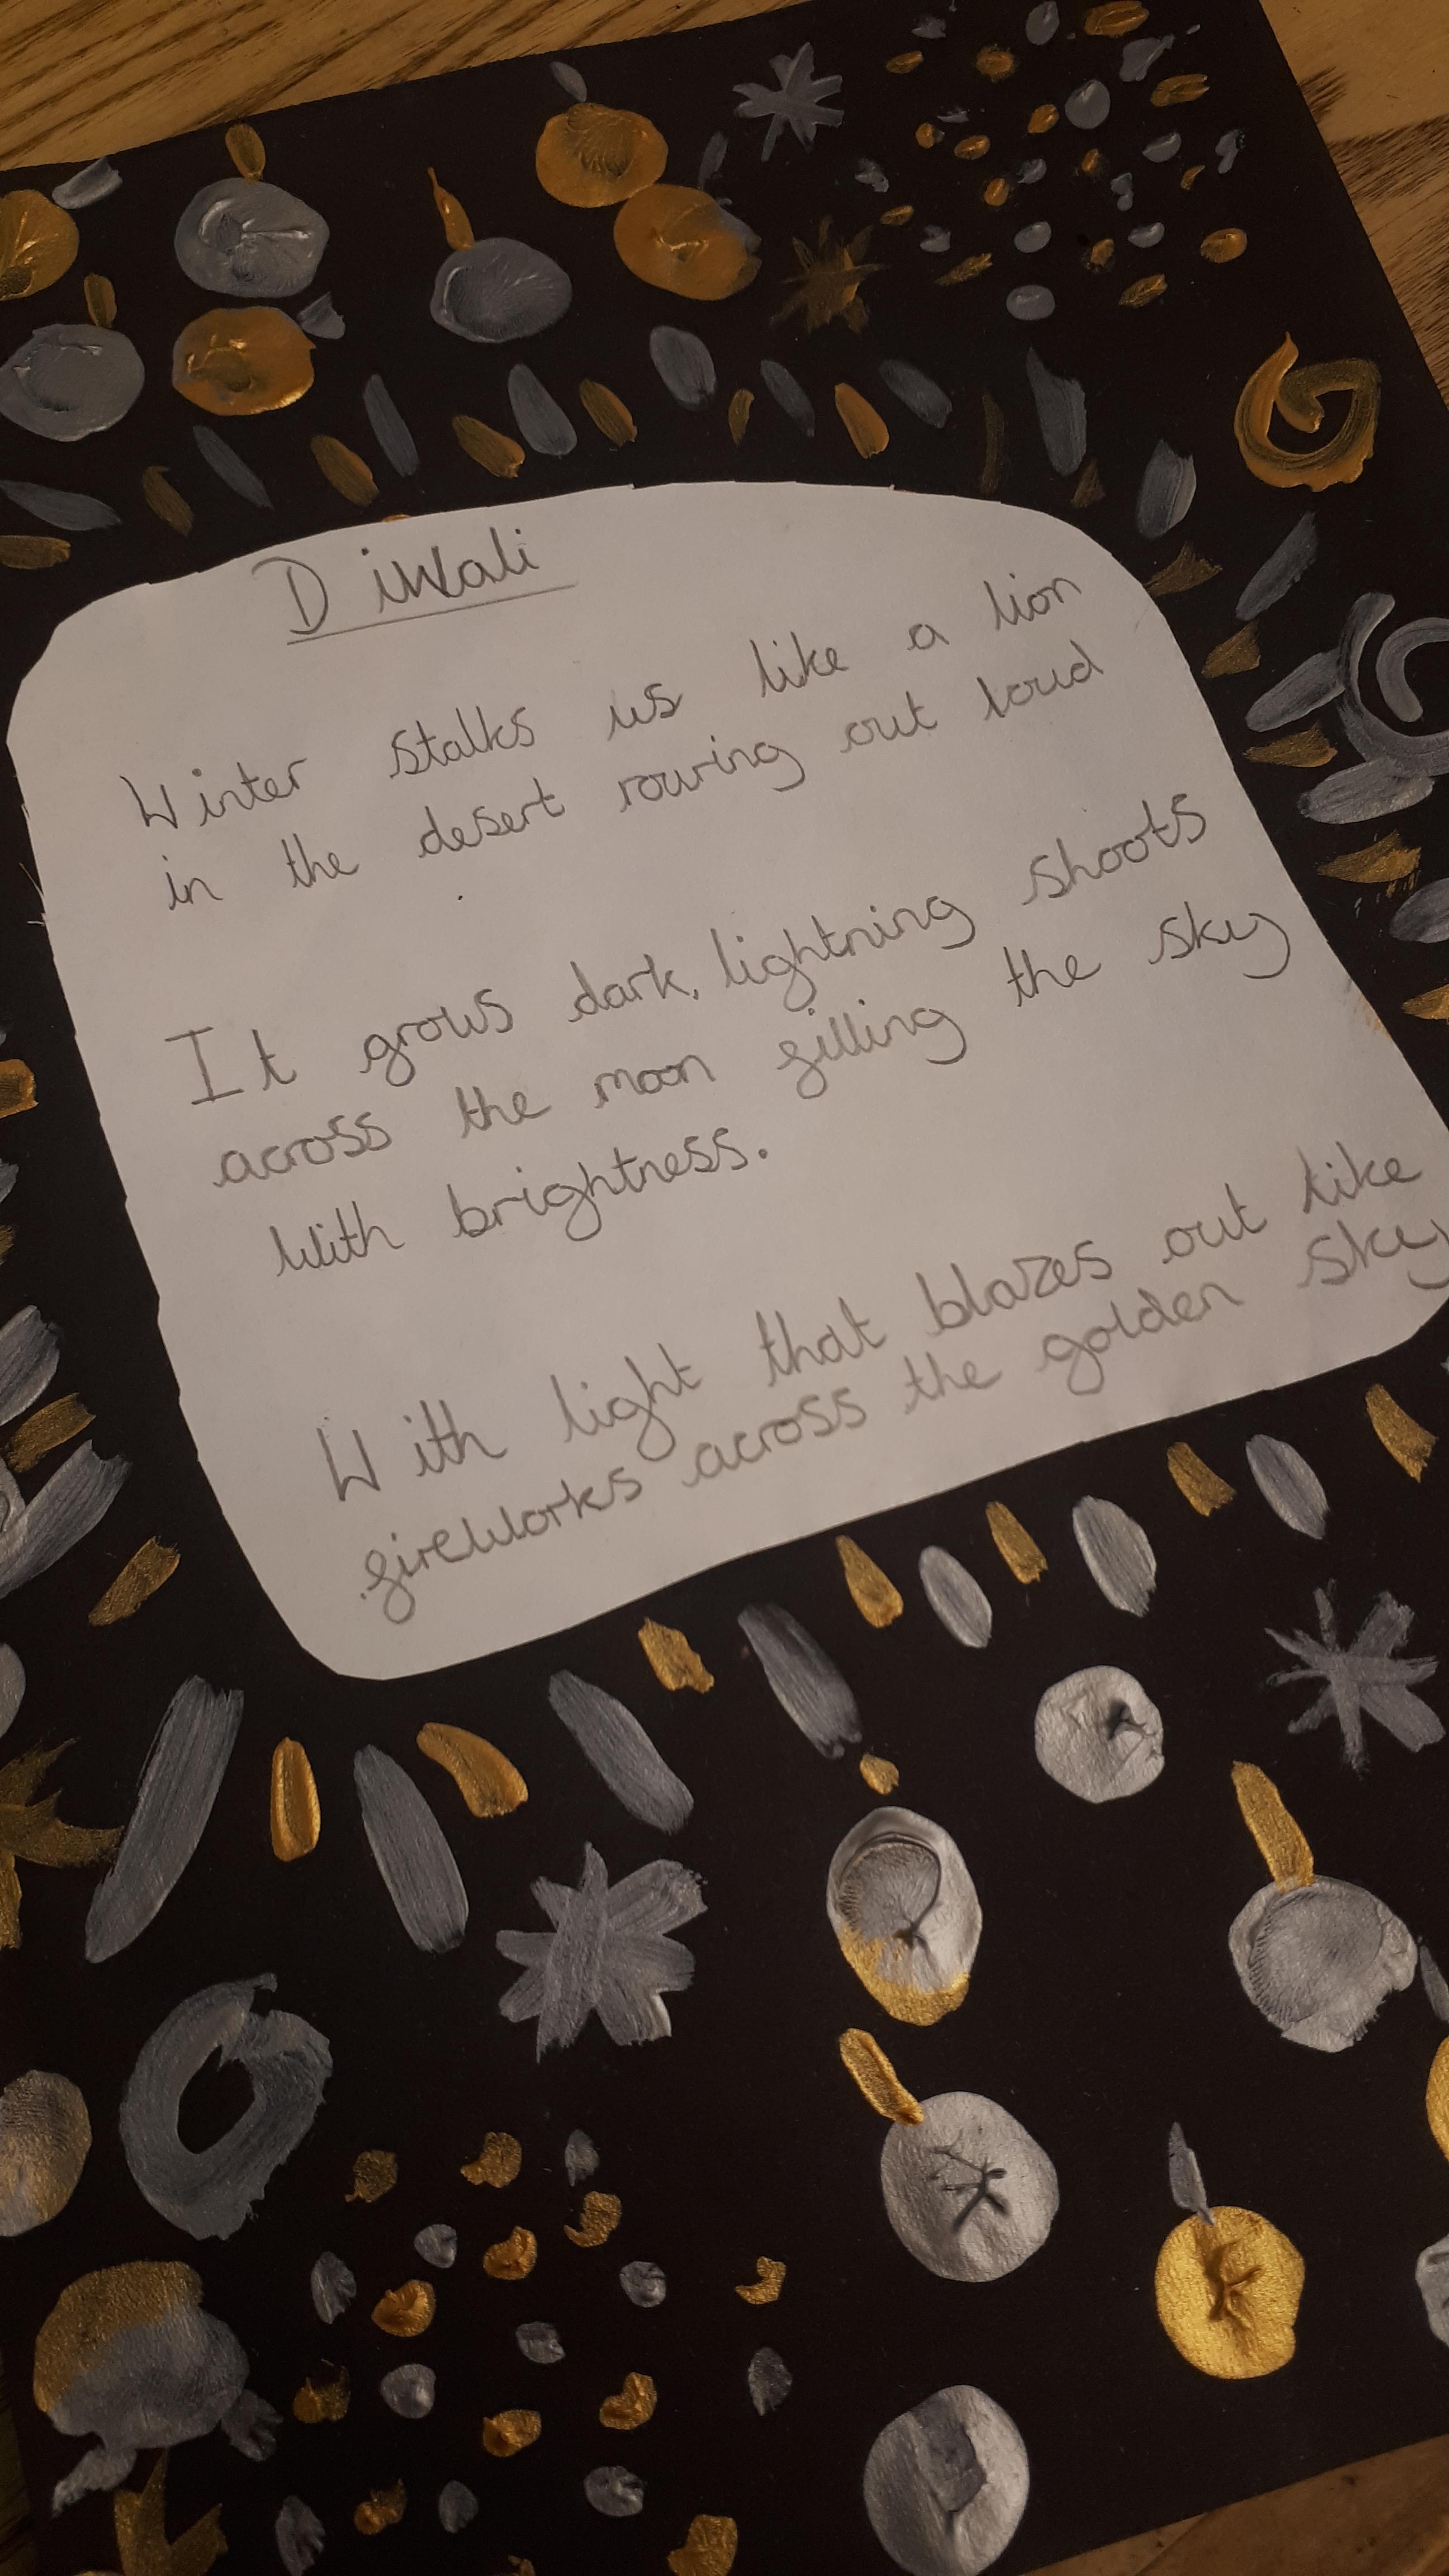 Diwali
Winter stalks us like a lion
in the desert rowring out loud
It grows dark, lightning shoots
across the moon filling the sky
with brightness.
With light that blazes out like
fireworks across the golden sky